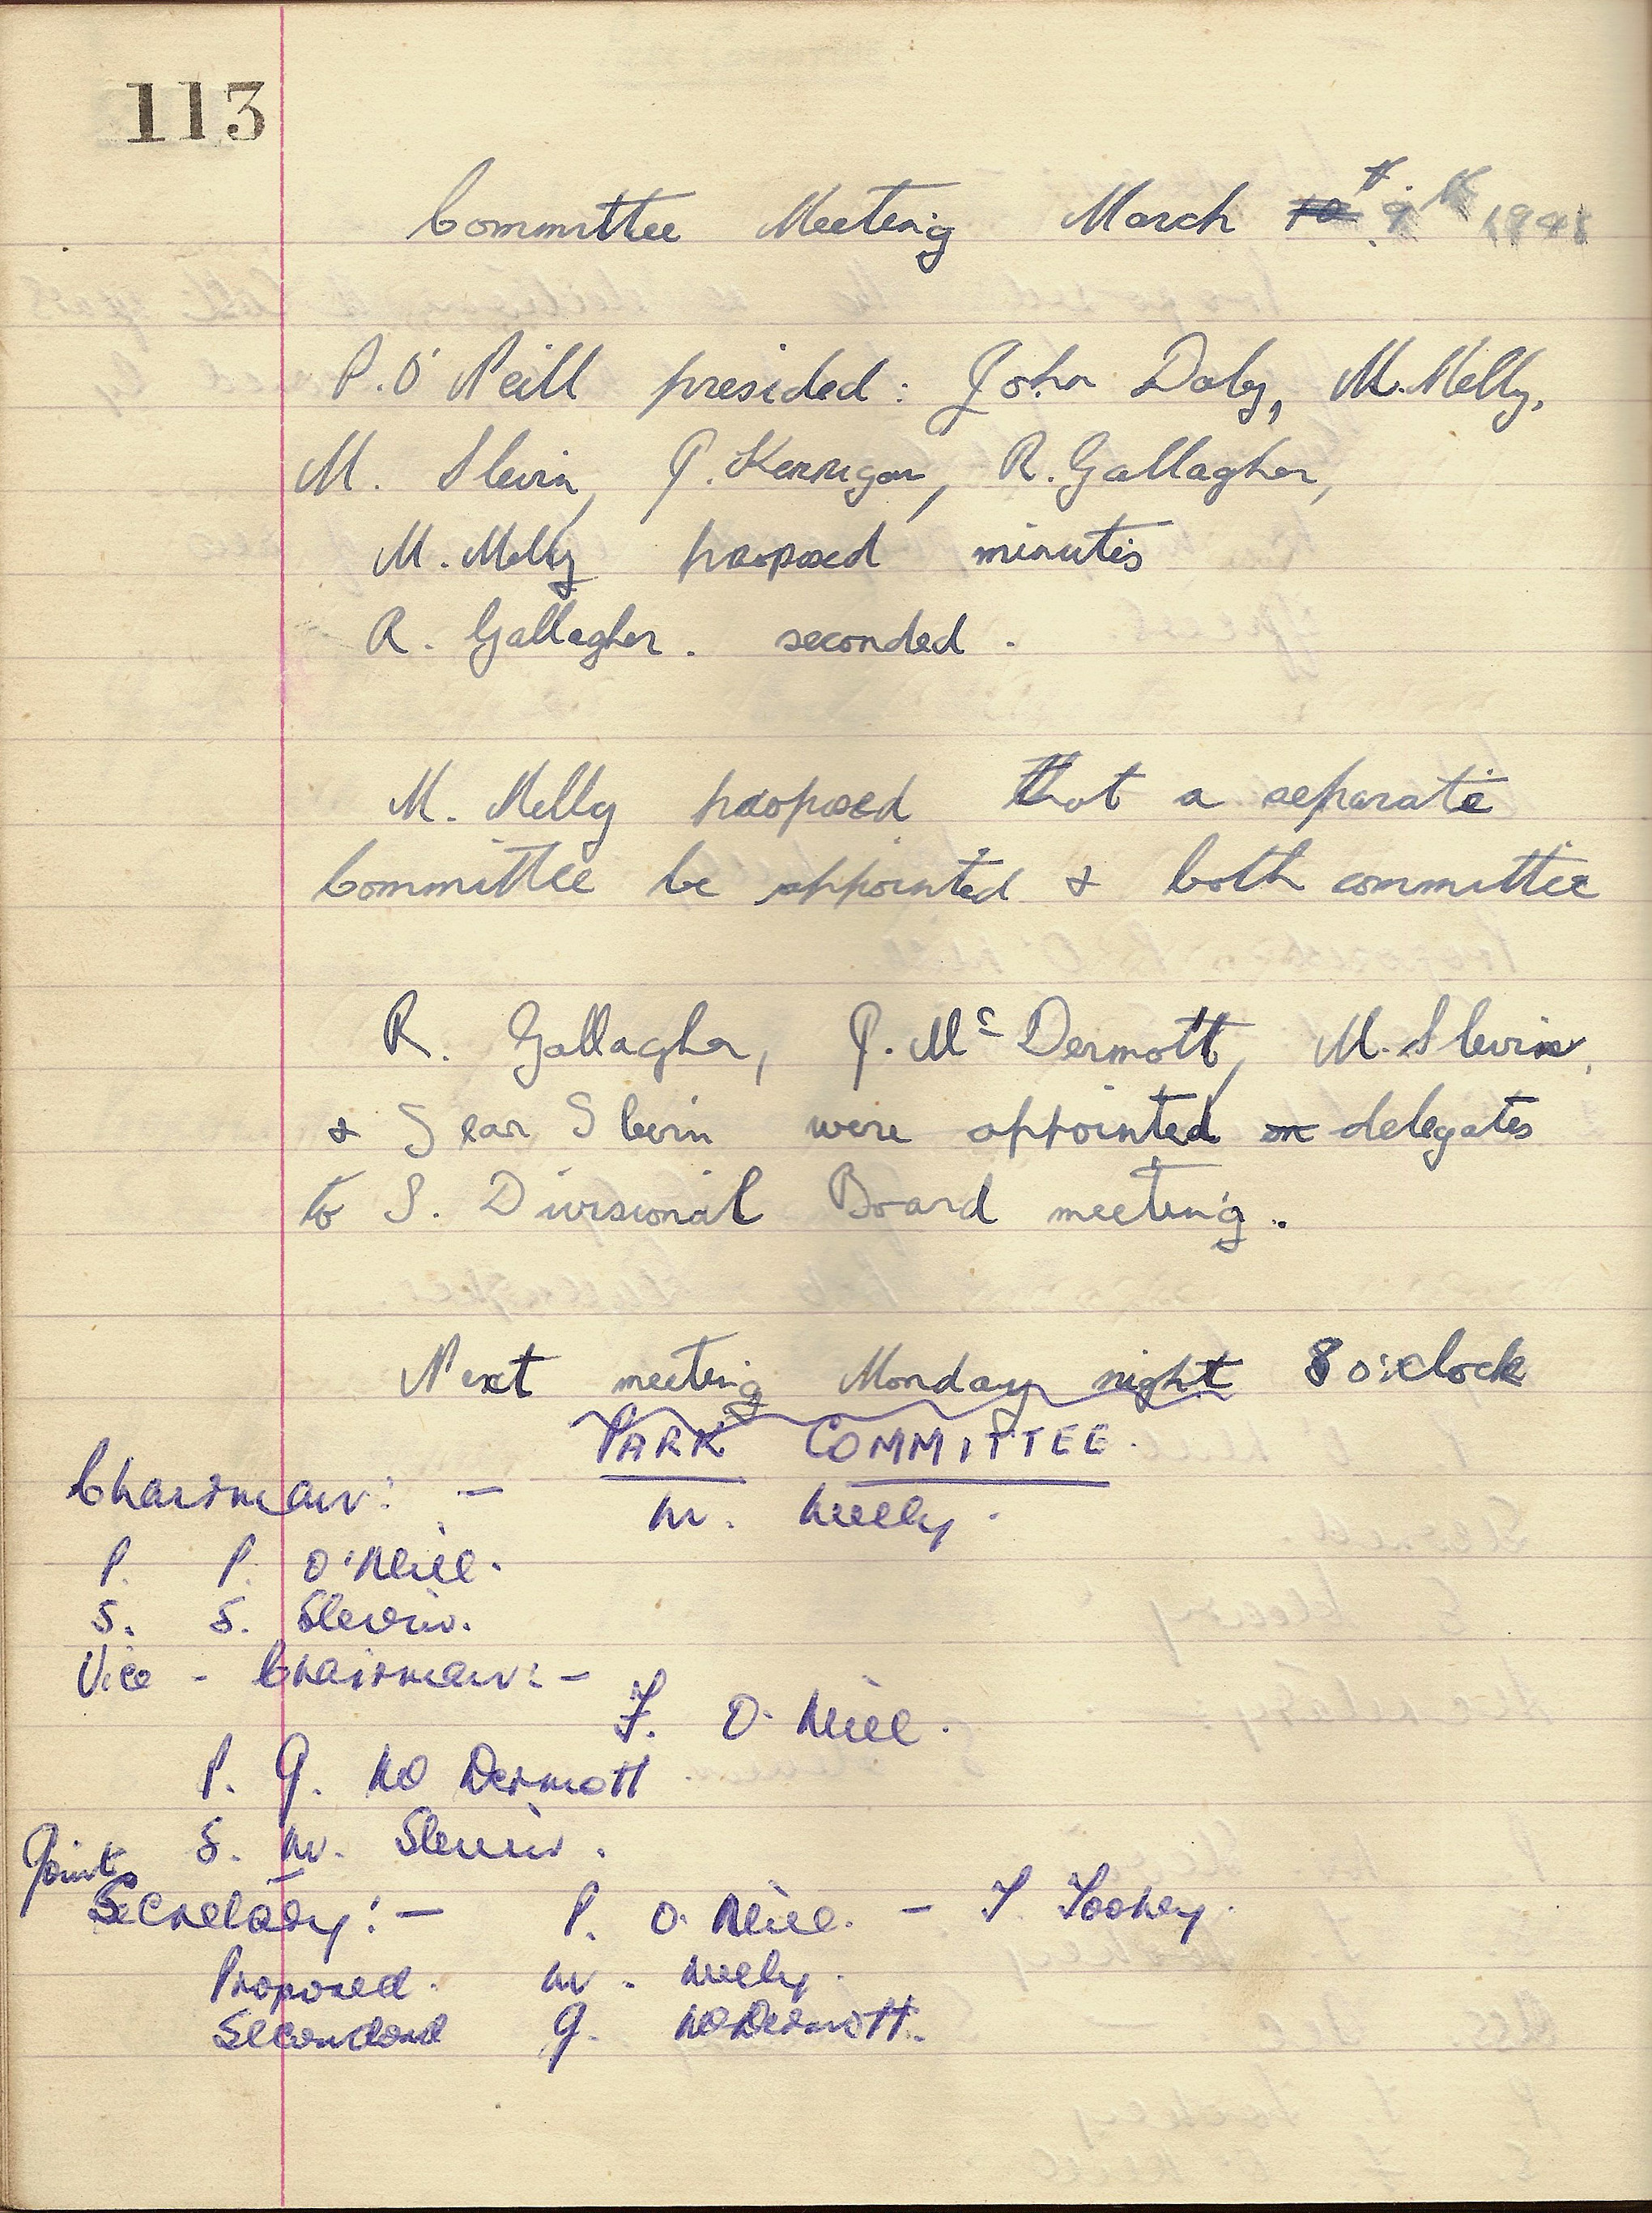 113
Committee Meeting March 10th. 9th 1948
P. O'Neill presided: John Daly, M. Melly,
M. Slevin, J. Kerrigan, R. Gallagher,
M. Melly proposed minutes
R. Gallagher. seconded.
M. Melly proposed that a separate
Committee be appointed & both committee
R. Gallagher, J. McDermott, M. Slevin,
& Sean Slevin were appointed on delegates
to S. Divisional Board meeting.
Next meeting Monday night 8 o'clock
PARK COMMITTEE.
Chairman: -
M. Melly.
P. P. O'Neill.
S. S. Slevin.
Vice - Chairman: -
F. O'Neill.
P. J. McDermott
S. M. Slevin.
Joint
Secretary: - P. O'Neill. - T. Toohey.
Proposed. M. Melly.
Seconded J. McDermott.